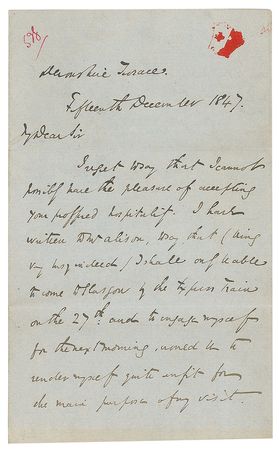 Devonshire Terrace.
Fifteenth December 1847.
My Dear Sir
I regret to say that I cannot
possibly have the pleasure of accepting
your proffered hospitality. I have
written to Mr Alison, to say that (being
very busy indeed) I shall only be able
to come to Glasgow by the Express Train
on the 27th. and to engage myself
for the next morning, would be to
render myself quite unfit for
the main purpose of my visit.